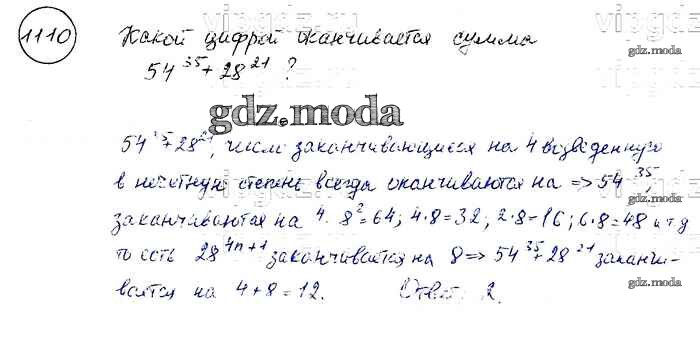 1110 Какой цифрой оканчивается сумма
54^35 + 28^21 ?
gdz.moda
54^35 + 28^21, числа заканчивающиеся на 4 возведенную
в нечетную степень всегда оканчиваются на => 54^35,
заканчиваются на 4. 8^2=64; 4·8=32; 2·8=16; 6·8=48 и т д
то есть 28^4n+1 заканчивается на 8 => 54^35+28^21 заканчи-
вается на 4+8=12. Ответ 2.
gdz.moda
gdz.moda
gdz.moda